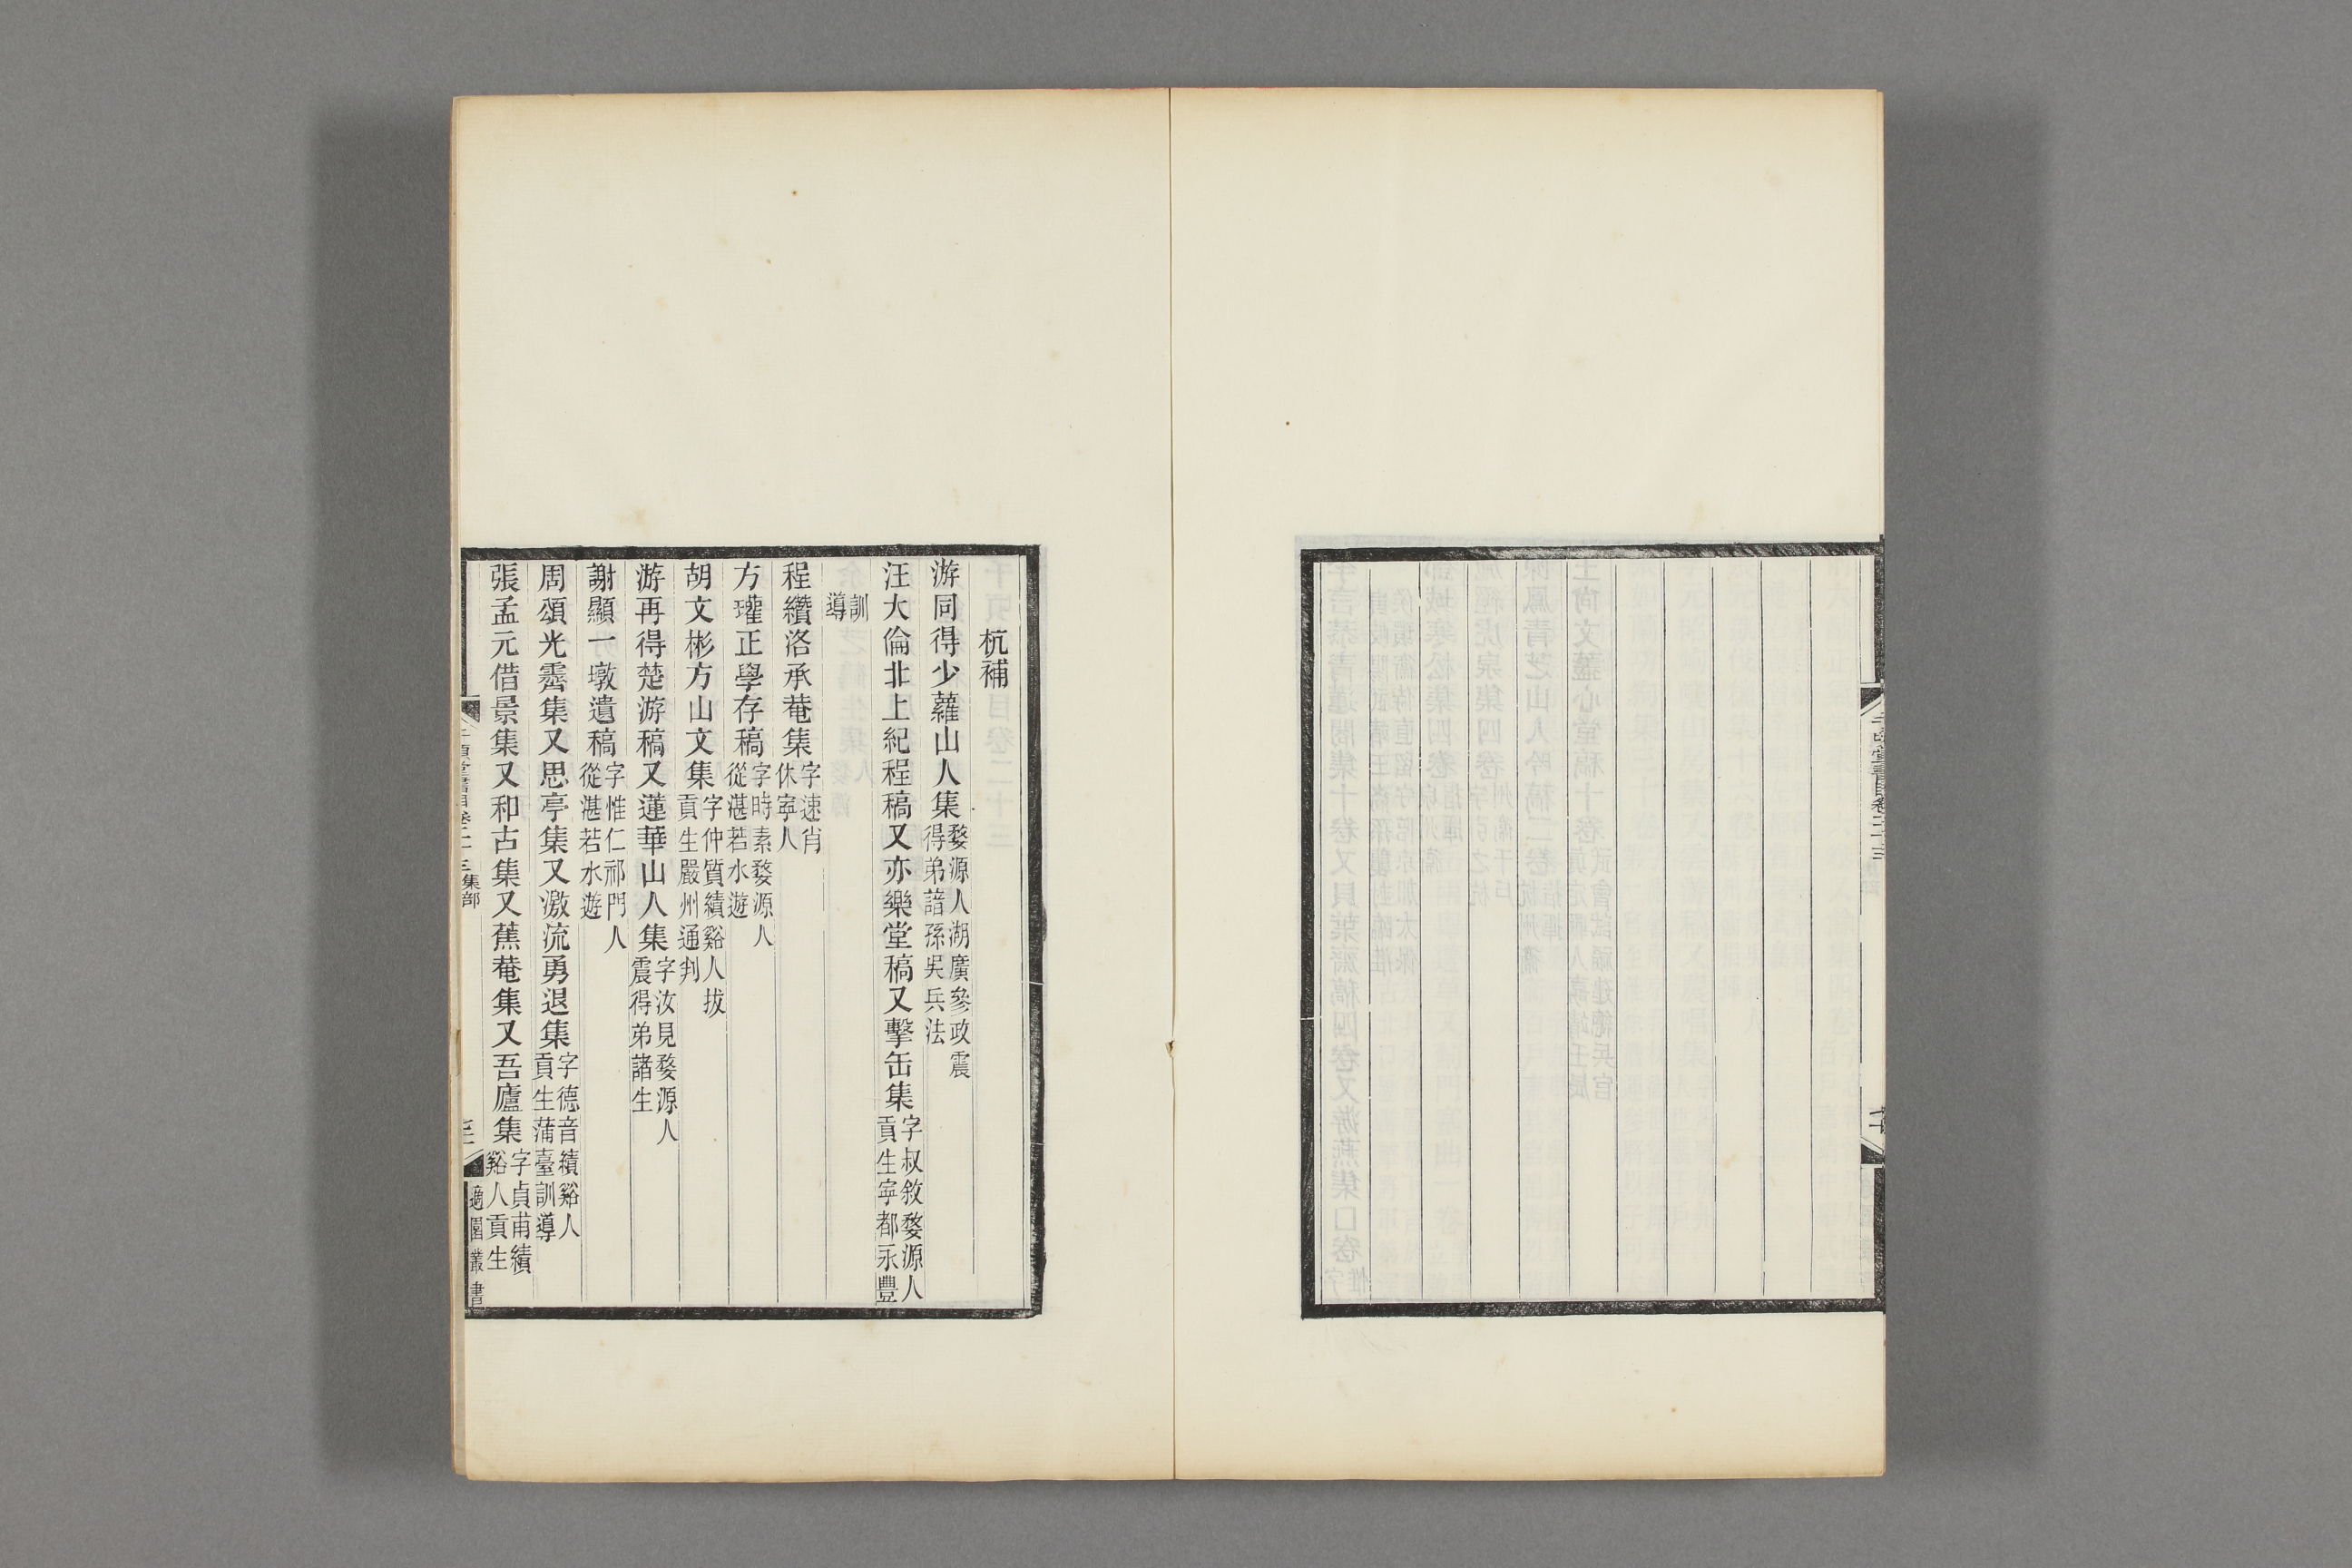 杭補
游同得少蘿山人集婺源人湖廣參政震得弟諳孫吳兵法
汪大倫北上紀程稿又亦樂堂稿又擊缶集字叔敘婺源人貢生寧都永豐
訓導
程纘洛承菴集字速肖休寧人
方瓘正學存稿字時素婺源人從湛若水遊
胡文彬方山文集字仲質績谿人拔貢生嚴州通判
游再得楚游稿又蓮華山人集字汝見婺源人震得弟諸生
謝顯一墩遺稿字惟仁祁門人從湛若水遊
周頌光霽集又思亭集又激流勇退集字德音績谿人貢生蒲臺訓導
張孟元借景集又和古集又蕉菴集又吾廬集字貞甫績谿人貢生
集部
適園叢書